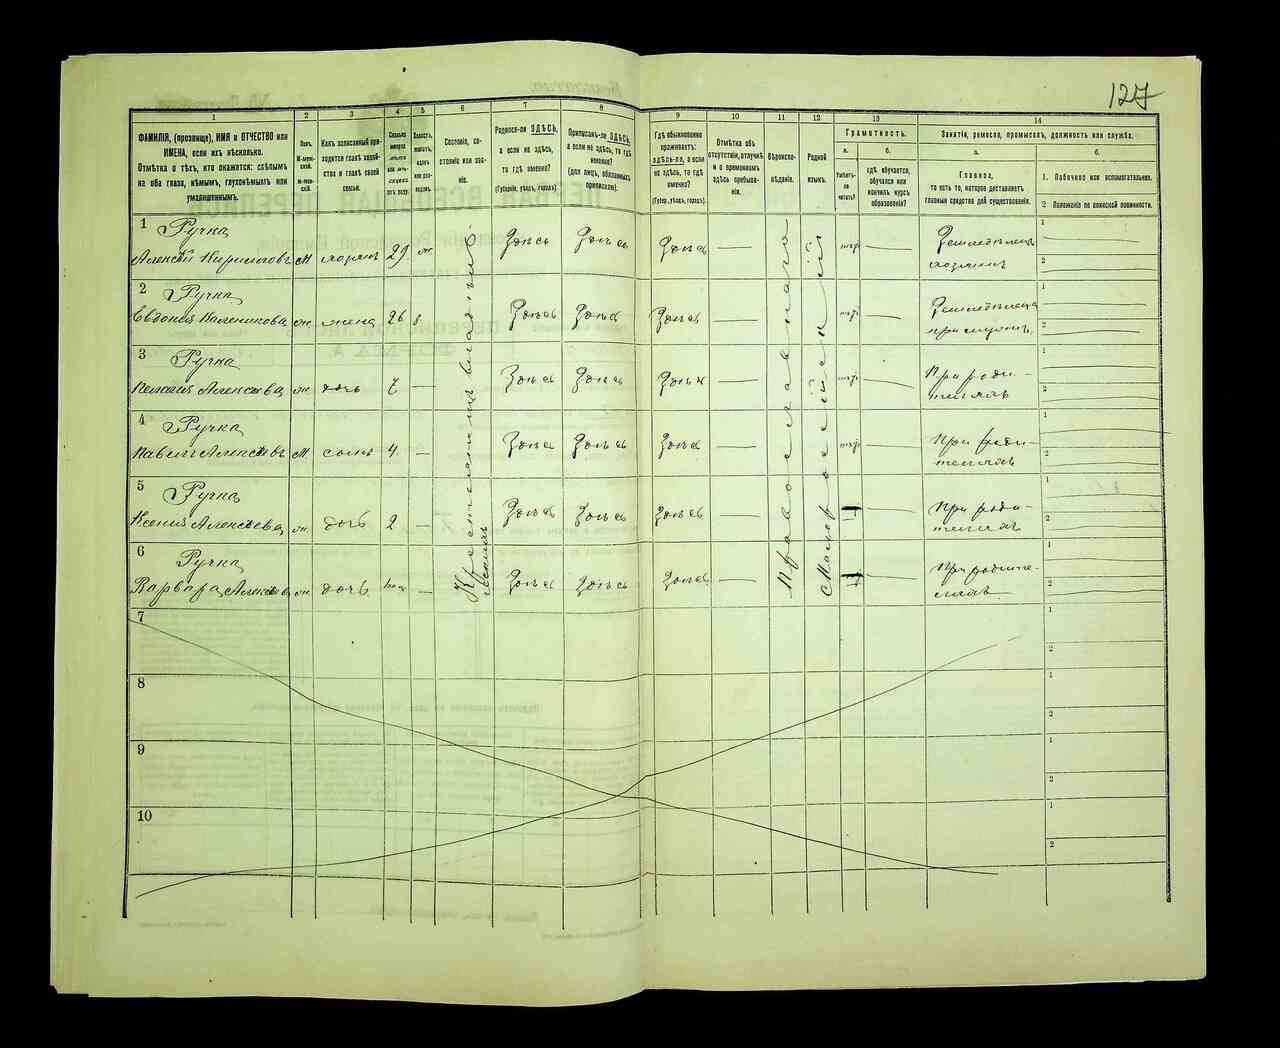 127
1
2
3
4
5
6
7
8
9
10
11
12
13
14
ФАМИЛІЯ, (прозвище), ИМЯ и ОТЧЕСТВО или
ИМЕНА, если ихъ нѣсколько.
Отмѣтка о тѣхъ, кто окажется: слѣпымъ
на оба глаза, нѣмымъ, глухонѣмымъ или
умалишеннымъ.
Полъ.
М-муж-
ской.
Ж-жен-
скій.
Какъ записанный при-
ходится главѣ хозяй-
ства и главѣ своей
семьи.
Сословіе, со-
стояніе или зва-
ніе.
Родился-ли ЗДѢСЬ,
а если не здѣсь,
то гдѣ именно?
(Губернія, уѣздъ, городъ).
Приписанъ-ли ЗДѢСЬ,
а если не здѣсь, то гдѣ
именно?
(для лицъ, обязанныхъ
припискою).
Гдѣ обыкновенно
проживаетъ:
здѣсь-ли, а если
не здѣсь, то гдѣ
именно?
(Губер., уѣздъ, городъ).
Отмѣтка объ
отсутствіи, отлучкѣ
и о временномъ
здѣсь пребыва-
ніи.
Вѣроиспо-
вѣданіе.
Родной
языкъ.
Грамотность.
а.
Умѣетъ-
ли
читать?
б.
гдѣ обучается,
обучался или
кончилъ курсъ
образованія?
Занятіе, ремесло, промыселъ, должность или служба.
а.
Главное,
то есть то, которое доставляетъ
главныя средства для существованія.
б.
1. Побочное или вспомогательное.
2 Положеніе по воинской повинности.
1 Ручка
Алексѣй Кириловъ М хозяинъ 29 ж. Здѣсь Здѣсь Здѣсь — негр. — Земледѣлецъ
хозяинъ
1
2
2 Ручка
Евдокія Калениковa ж жена 26 Здѣсь Здѣсь Здѣсь — негр. — Земледѣлица
1
2
3 Ручка
Алексѣева ж дочь 7 — Здѣсь Здѣсь Здѣсь — негр. — При роди-
теляхъ
1
2
4 Ручка
Павелъ Алексѣевъ М сынъ 4 — Здѣсь Здѣсь Здѣсь — негр. — При роди-
теляхъ
1
2
5 Ручка
Ксенія Алексѣева ж. дочь 2 — Здѣсь Здѣсь Здѣсь — — При роди-
теляхъ
1
2
6 Ручка
Варвара Алексѣева ж. дочь — Здѣсь Здѣсь Здѣсь — — При родите-
ляхъ
1
2
Православное
Малороссійскій
7
1
2
8
1
2
9
1
2
10
1
2